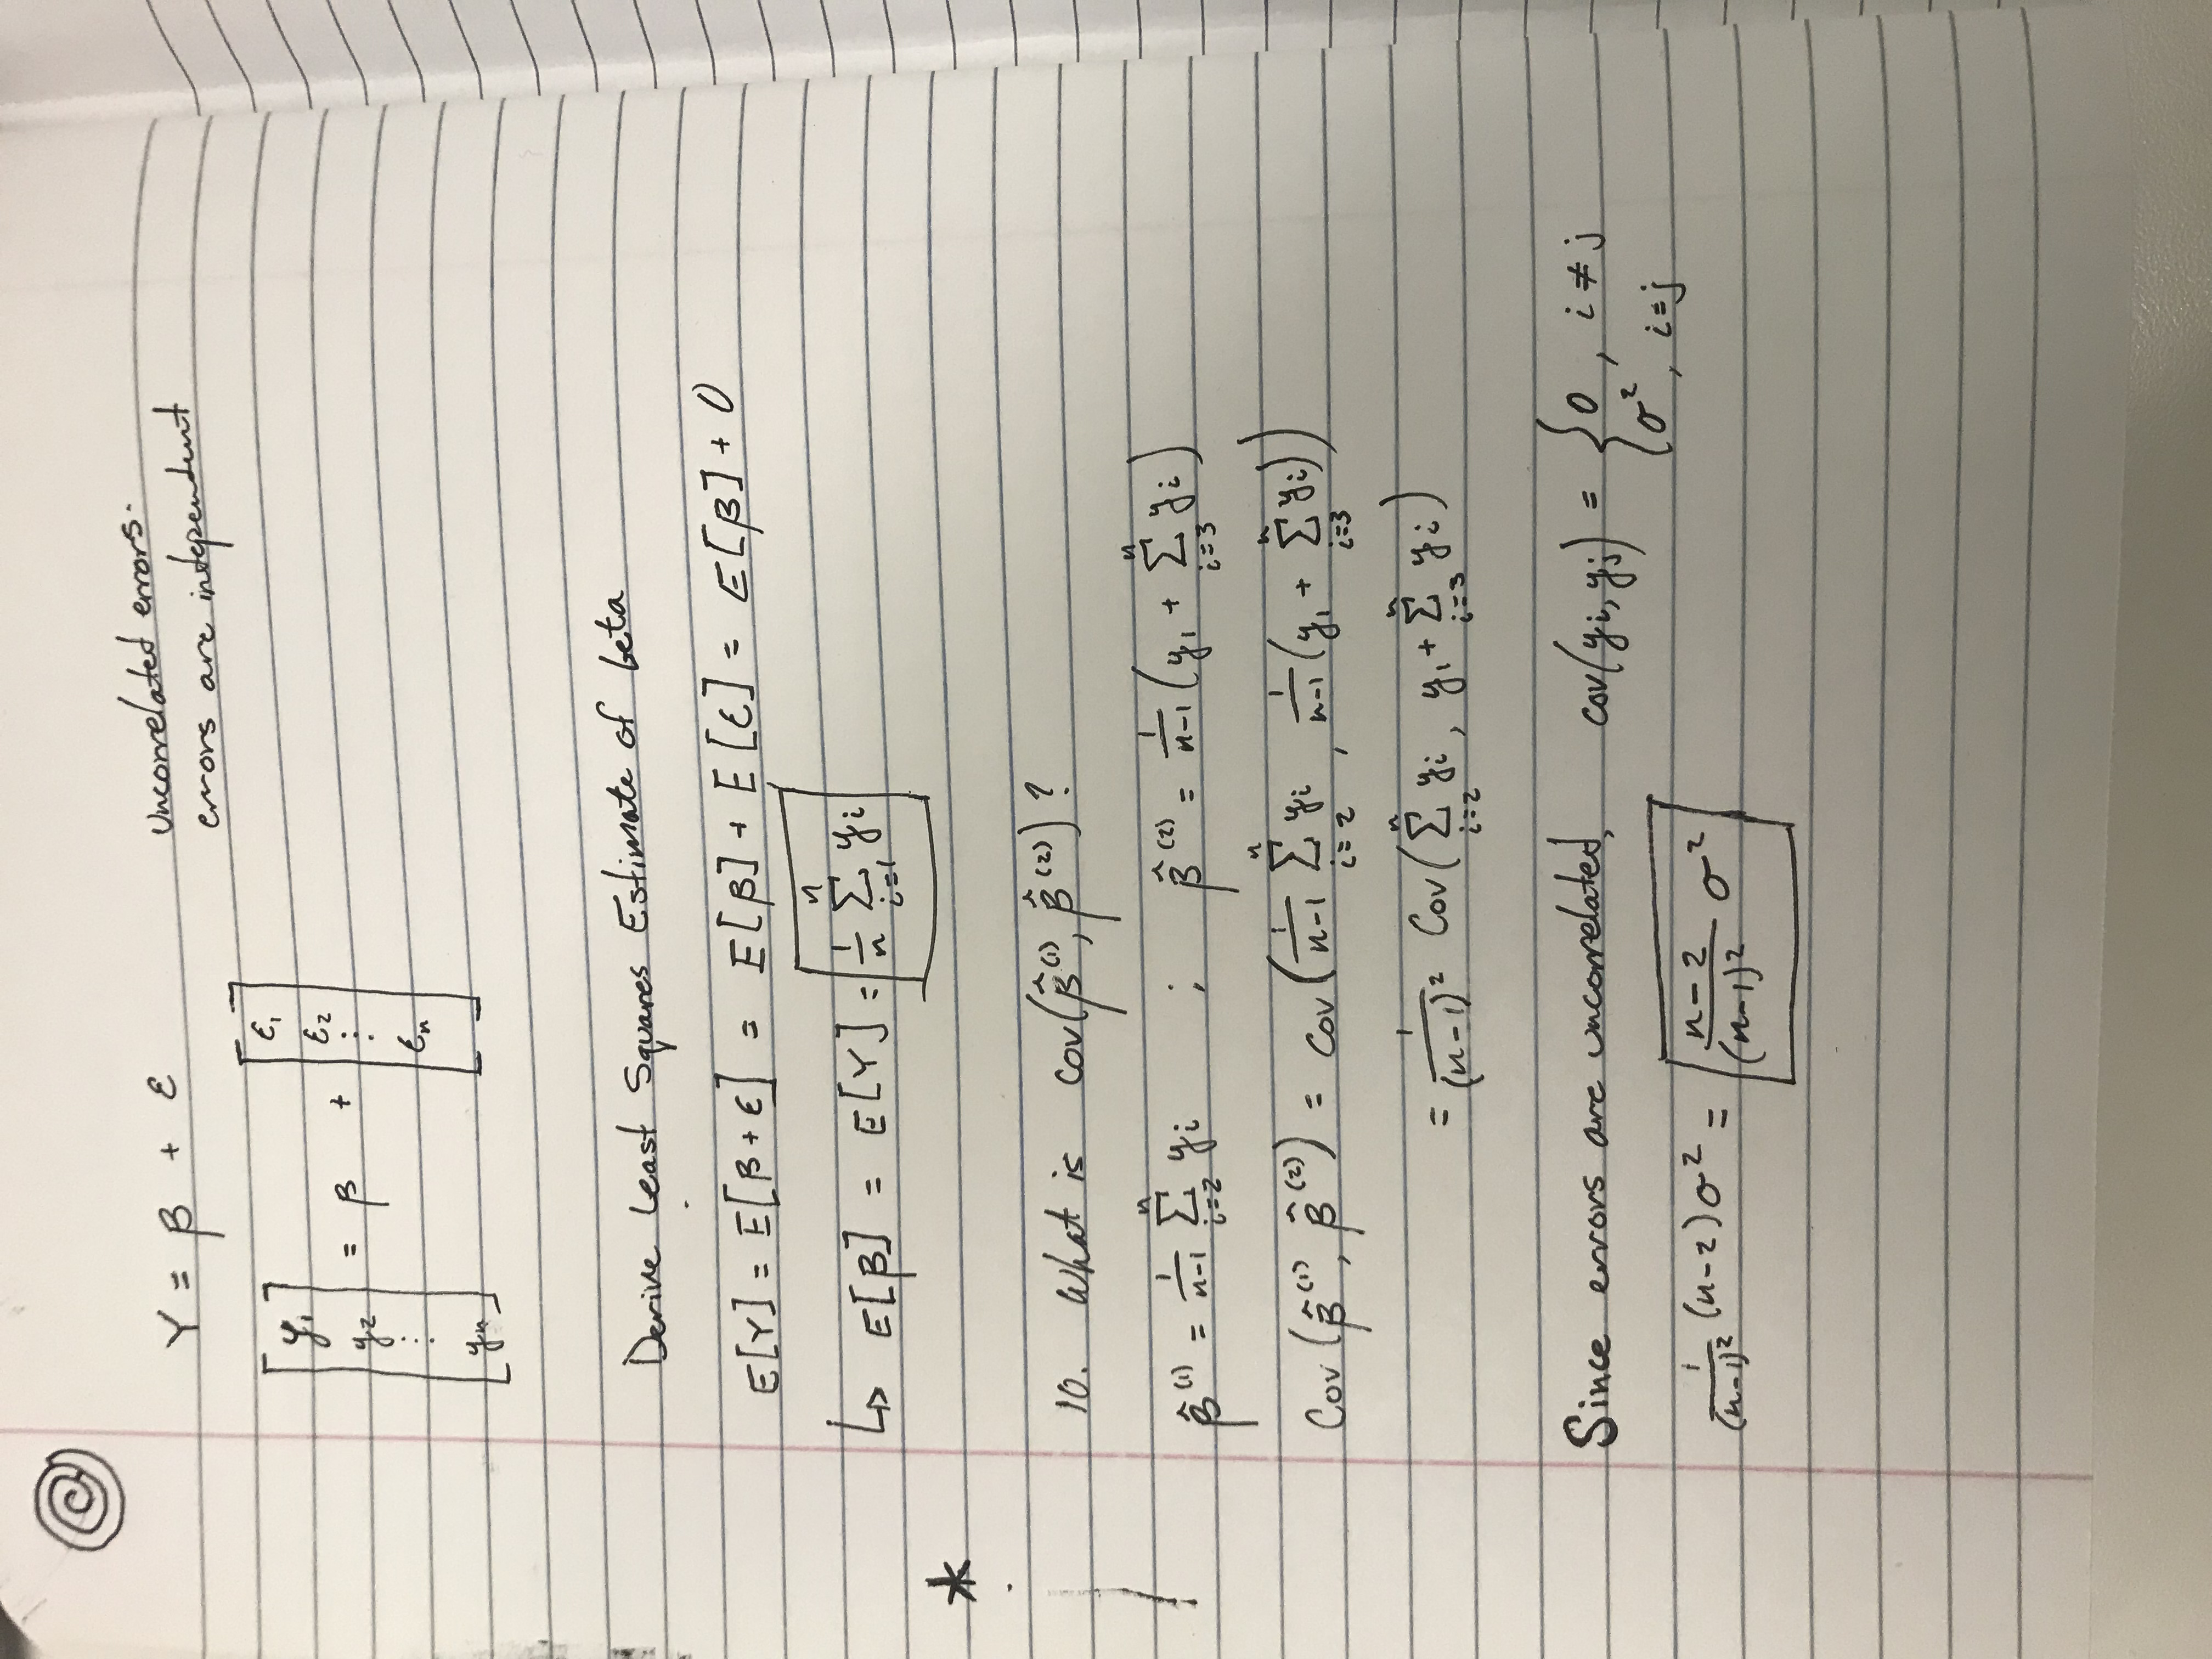 Y = β + ε
uncorrelated errors.
errors are independent
[y₁ y₂ ⋮ yₙ] = β + [ε₁ ε₂ ⋮ εₙ]
Derive Least Squares Estimate of beta
E[Y] = E[β + ε] = E[β] + E[ε] = E[β] + 0
↳ E[β] = E[Y] = 1/n Σ_{i=1}^{n} yᵢ
*
10. What is cov(β̂⁽¹⁾, β̂⁽²⁾)?
β̂⁽¹⁾ = 1/(n-1) Σ_{i=2}^{n} yᵢ ; β̂⁽²⁾ = 1/(n-1) (y₁ + Σ_{i=3}^{n} yᵢ)
Cov(β̂⁽¹⁾, β̂⁽²⁾) = Cov(1/(n-1) Σ_{i=2}^{n} yᵢ, 1/(n-1) (y₁ + Σ_{i=3}^{n} yᵢ))
= 1/(n-1)² Cov(Σ_{i=2}^{n} yᵢ, y₁ + Σ_{i=3}^{n} yᵢ)
Since errors are uncorrelated, cov(yᵢ, yⱼ) = {0, i ≠ j
σ², i=j
1/(n-1)² (n-2)σ² = (n-2)/(n-1)² σ²